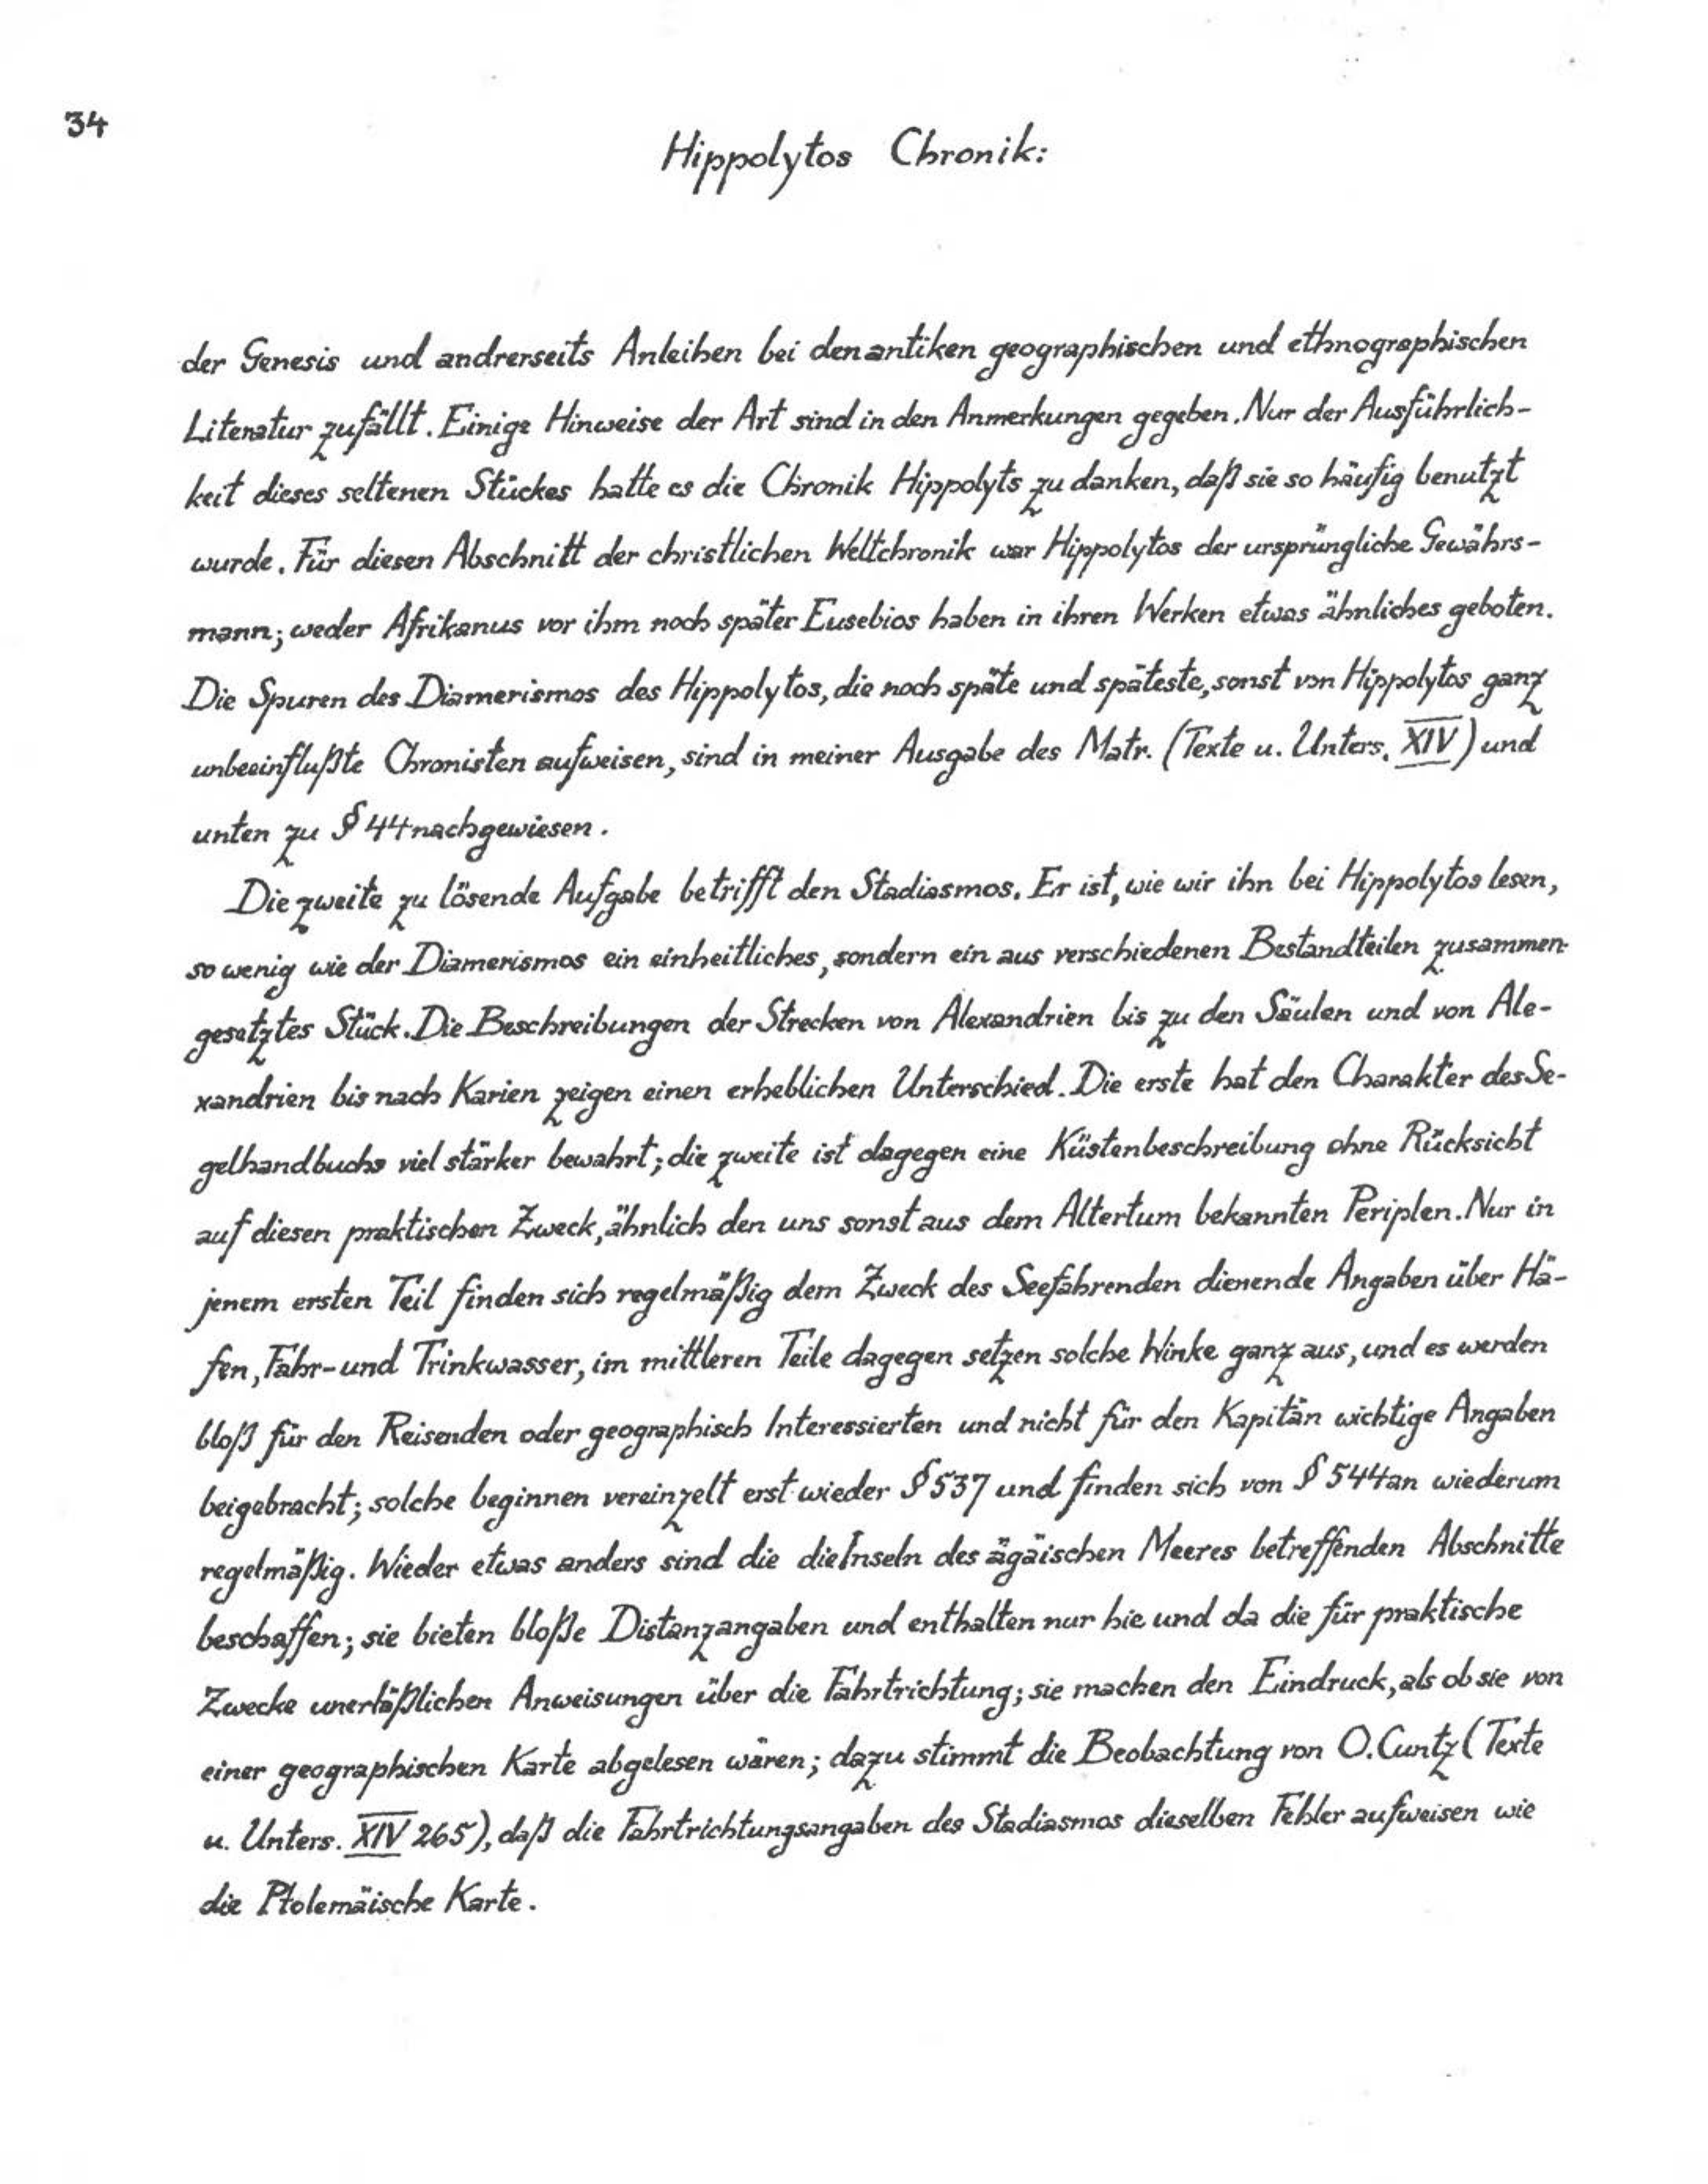 34
Hippolytos Chronik:
der Genesis und andrerseits Anleihen bei den antiken geographischen und ethnographischen
Literatur zufällt. Einige Hinweise der Art sind in den Anmerkungen gegeben. Nur der Ausführlich-
keit dieses seltenen Stückes hatte es die Chronik Hippolyts zu danken, daß sie so häufig benutzt
wurde. Für diesen Abschnitt der christlichen Weltchronik war Hippolytos der ursprüngliche Gewährs-
mann; weder Afrikanus vor ihm noch später Eusebios haben in ihren Werken etwas ähnliches geboten.
Die Spuren des Diamerismos des Hippolytos, die noch späte und späteste, sonst von Hippolytos ganz
unbeeinflußte Chronisten aufweisen, sind in meiner Ausgabe des Matr. (Texte u. Unters. XIV) und
unten zu § 44 nachgewiesen.
Die zweite zu lösende Aufgabe betrifft den Stadiasmos. Er ist, wie wir ihn bei Hippolytos lesen,
so wenig wie der Diamerismos ein einheitliches, sondern ein aus verschiedenen Bestandteilen zusammen-
gesetztes Stück. Die Beschreibungen der Strecken von Alexandrien bis zu den Säulen und von Ale-
xandrien bis nach Karien zeigen einen erheblichen Unterschied. Die erste hat den Charakter des Se-
gelhandbuchs viel stärker bewahrt; die zweite ist dagegen eine Küstenbeschreibung ohne Rücksicht
auf diesen praktischen Zweck, ähnlich den uns sonst aus dem Altertum bekannten Periplen. Nur in
jenem ersten Teil finden sich regelmäßig dem Zweck des Seefahrenden dienende Angaben über Hä-
fen, Fahr- und Trinkwasser, im mittleren Teile dagegen setzen solche Winke ganz aus, und es werden
bloß für den Reisenden oder geographisch Interessierten und nicht für den Kapitän wichtige Angaben
beigebracht; solche beginnen vereinzelt erst wieder § 537 und finden sich von § 544 an wiederum
regelmäßig. Wieder etwas anders sind die die Inseln des ägäischen Meeres betreffenden Abschnitte
beschaffen; sie bieten bloße Distanzangaben und enthalten nur hie und da die für praktische
Zwecke unerläßlichen Anweisungen über die Fahrtrichtung; sie machen den Eindruck, als ob sie von
einer geographischen Karte abgelesen wären; dazu stimmt die Beobachtung von O. Cuntz (Texte
u. Unters. XIV 265), daß die Fahrtrichtungsangaben des Stadiasmos dieselben Fehler aufweisen wie
die Ptolemäische Karte.